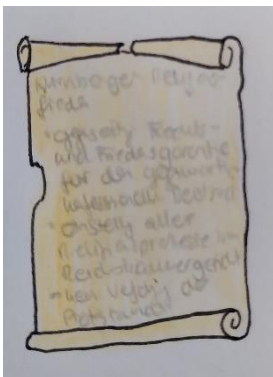 Nürnberger Religions-
friede
• gegenseitig Rechts-
und Friedensgarantie
für den gegenwärtig
konfessionell Besitzstand
• Einstellg aller
Religionsprozesse im
Reichskammergericht
→ kein
Protestanten